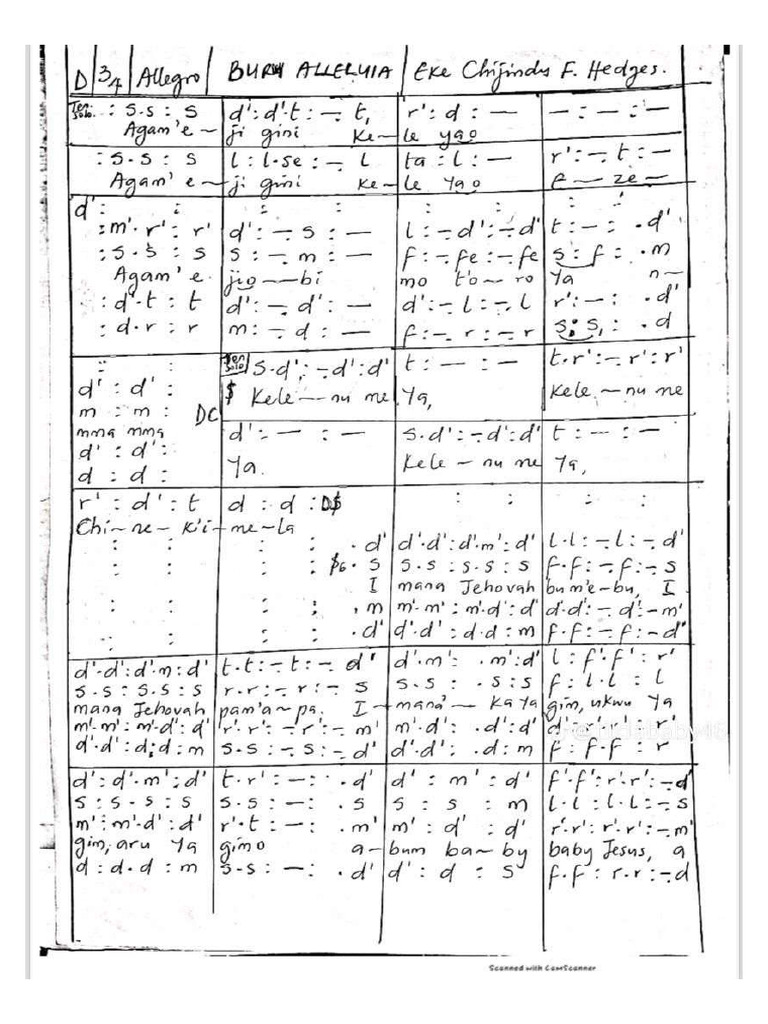 D | 3/4 | Allegro | BURU ALLELUIA | Eke Chijindu F. Hedges.
Ten. Solo. : s.s : s | d' : d'.t : -. t, | r' : d : — | — : — : —
Agam'e ~ | ji gini ke ~ | le yao
: s.s : s | l : l.se : -. l | ta : l : — | r' : -. t : —
Agam'e ~ | ji gini ke ~ | le Yao | e — ze —
d' : : | : : | : : | : :
: m'. r' : r' | d' : -. s : — | l : -. d' : -. d' | t : — : . d'
: s.s : s | s : -. m : — | f : -. fe : -. fe | s : f : . m
Agam'e. | jio ~ bi | mo t'o ~ ro | Ya n ~
: d'.t : t | d' : -. d' : — | d' : -. l : -. l | r' : — : . d'
: d.r : r | m : -. d : — | f : -. r : -. r | s : s, : . d
: : | Ten Solo s.d' : -. d' : d' | t : — : — | t.r' : -. r' : r'
d' : d' : | $ Kele — nu ne | Ya, | Kele. ~ nu ne
m : m : DC
mma mma | d' : — : — | s.d' : -. d' : d' | t : — : —
d' : d' : | Ya. | Kele ~ nu ne | Ya,
d : d :
r' : d' : t | d : d : D$ | : : | : :
Chi ~ ne ~ k'i ~ me ~ la
: : | : : . d' | d'.d' : d'.m' : d' | l.l : -. l : -. d'
: : | : $6. s | s.s : s.s : s | f.f : -. f : -. s
I | mana Jehovah | bum'e ~ bu, I
: : | : : , m | m'.m' : m'.d' : d | d'.d' : -. d' : - m'
: : | : : . d' | d'.d' : d.d : m | f.f : -. f : - d'
d'.d' : d'.m : d' | t.t : -. t : -. d' | d'.m' : . m' : d' | l : f'.f' : r'
s.s : s.s : s | r.r : -. r : - s | s.s : . s : s | f : l.l : l
mana Jehovah | pam'a ~ pa. I — | mana' ~ ka ya | gim, ukwu Ya
m'.m' : m'.d' : d' | r'.r' : -. r' : -. m' | m'.d' : . d' : d | d' : r'.r' : r'
d'.d' : d.d : m | s.s : -. s : -. d' | d'.d' : . d : m | f : f.f : r
d' : d'.m' : d' | t.r' : — : . d' | d' : m' : d' | f'.f' : r'.r' : -. d'
s : s.s : s | s.s : — : . s | s : s : m | l.l : l.l : -. s
m' : m'.d' : d' | r'.t : — : . m' | m' : d' : d' | r'.r' : r'.r' : -. m'
gim, aru Ya | gimo a ~ | bum ba ~ by | baby Jesus, a
d : d.d : m | s.s : — : . d' | d' : d : s | f.f : r.r : -. d
Scanned with CamScanner